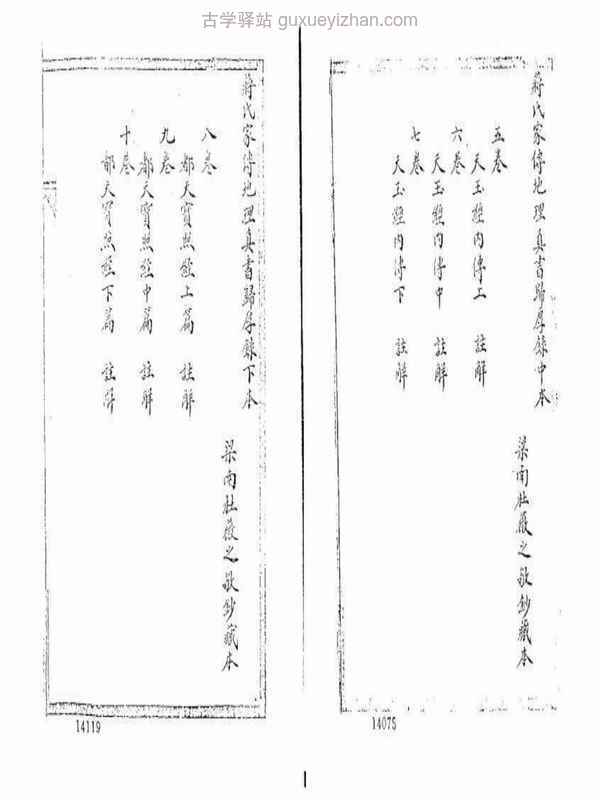 古学驿站 guxueyizhan.com
蔣氏家傳地理真書歸厚錄中本
五巻
天玉經内傳上 註解
六巻
天玉經内傳中 註解
七巻
天玉經内傳下 註解
梁南杜薇之敬鈔藏本
14075
蔣氏家傳地理真書歸厚錄下本
八巻
都天寶照經上篇 註解
九巻
都天寶照經中篇 註解
十巻
都天寶照經下篇 註解
梁南杜薇之敬鈔藏本
14119